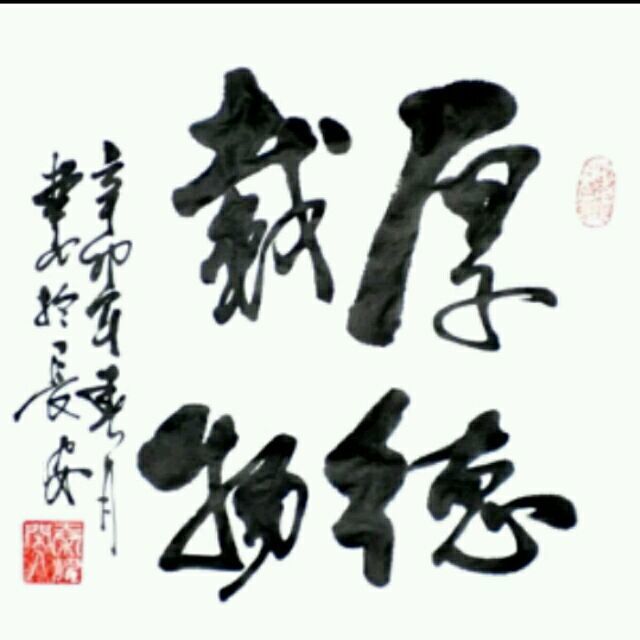 厚德
載物
辛卯年春月
書於長安